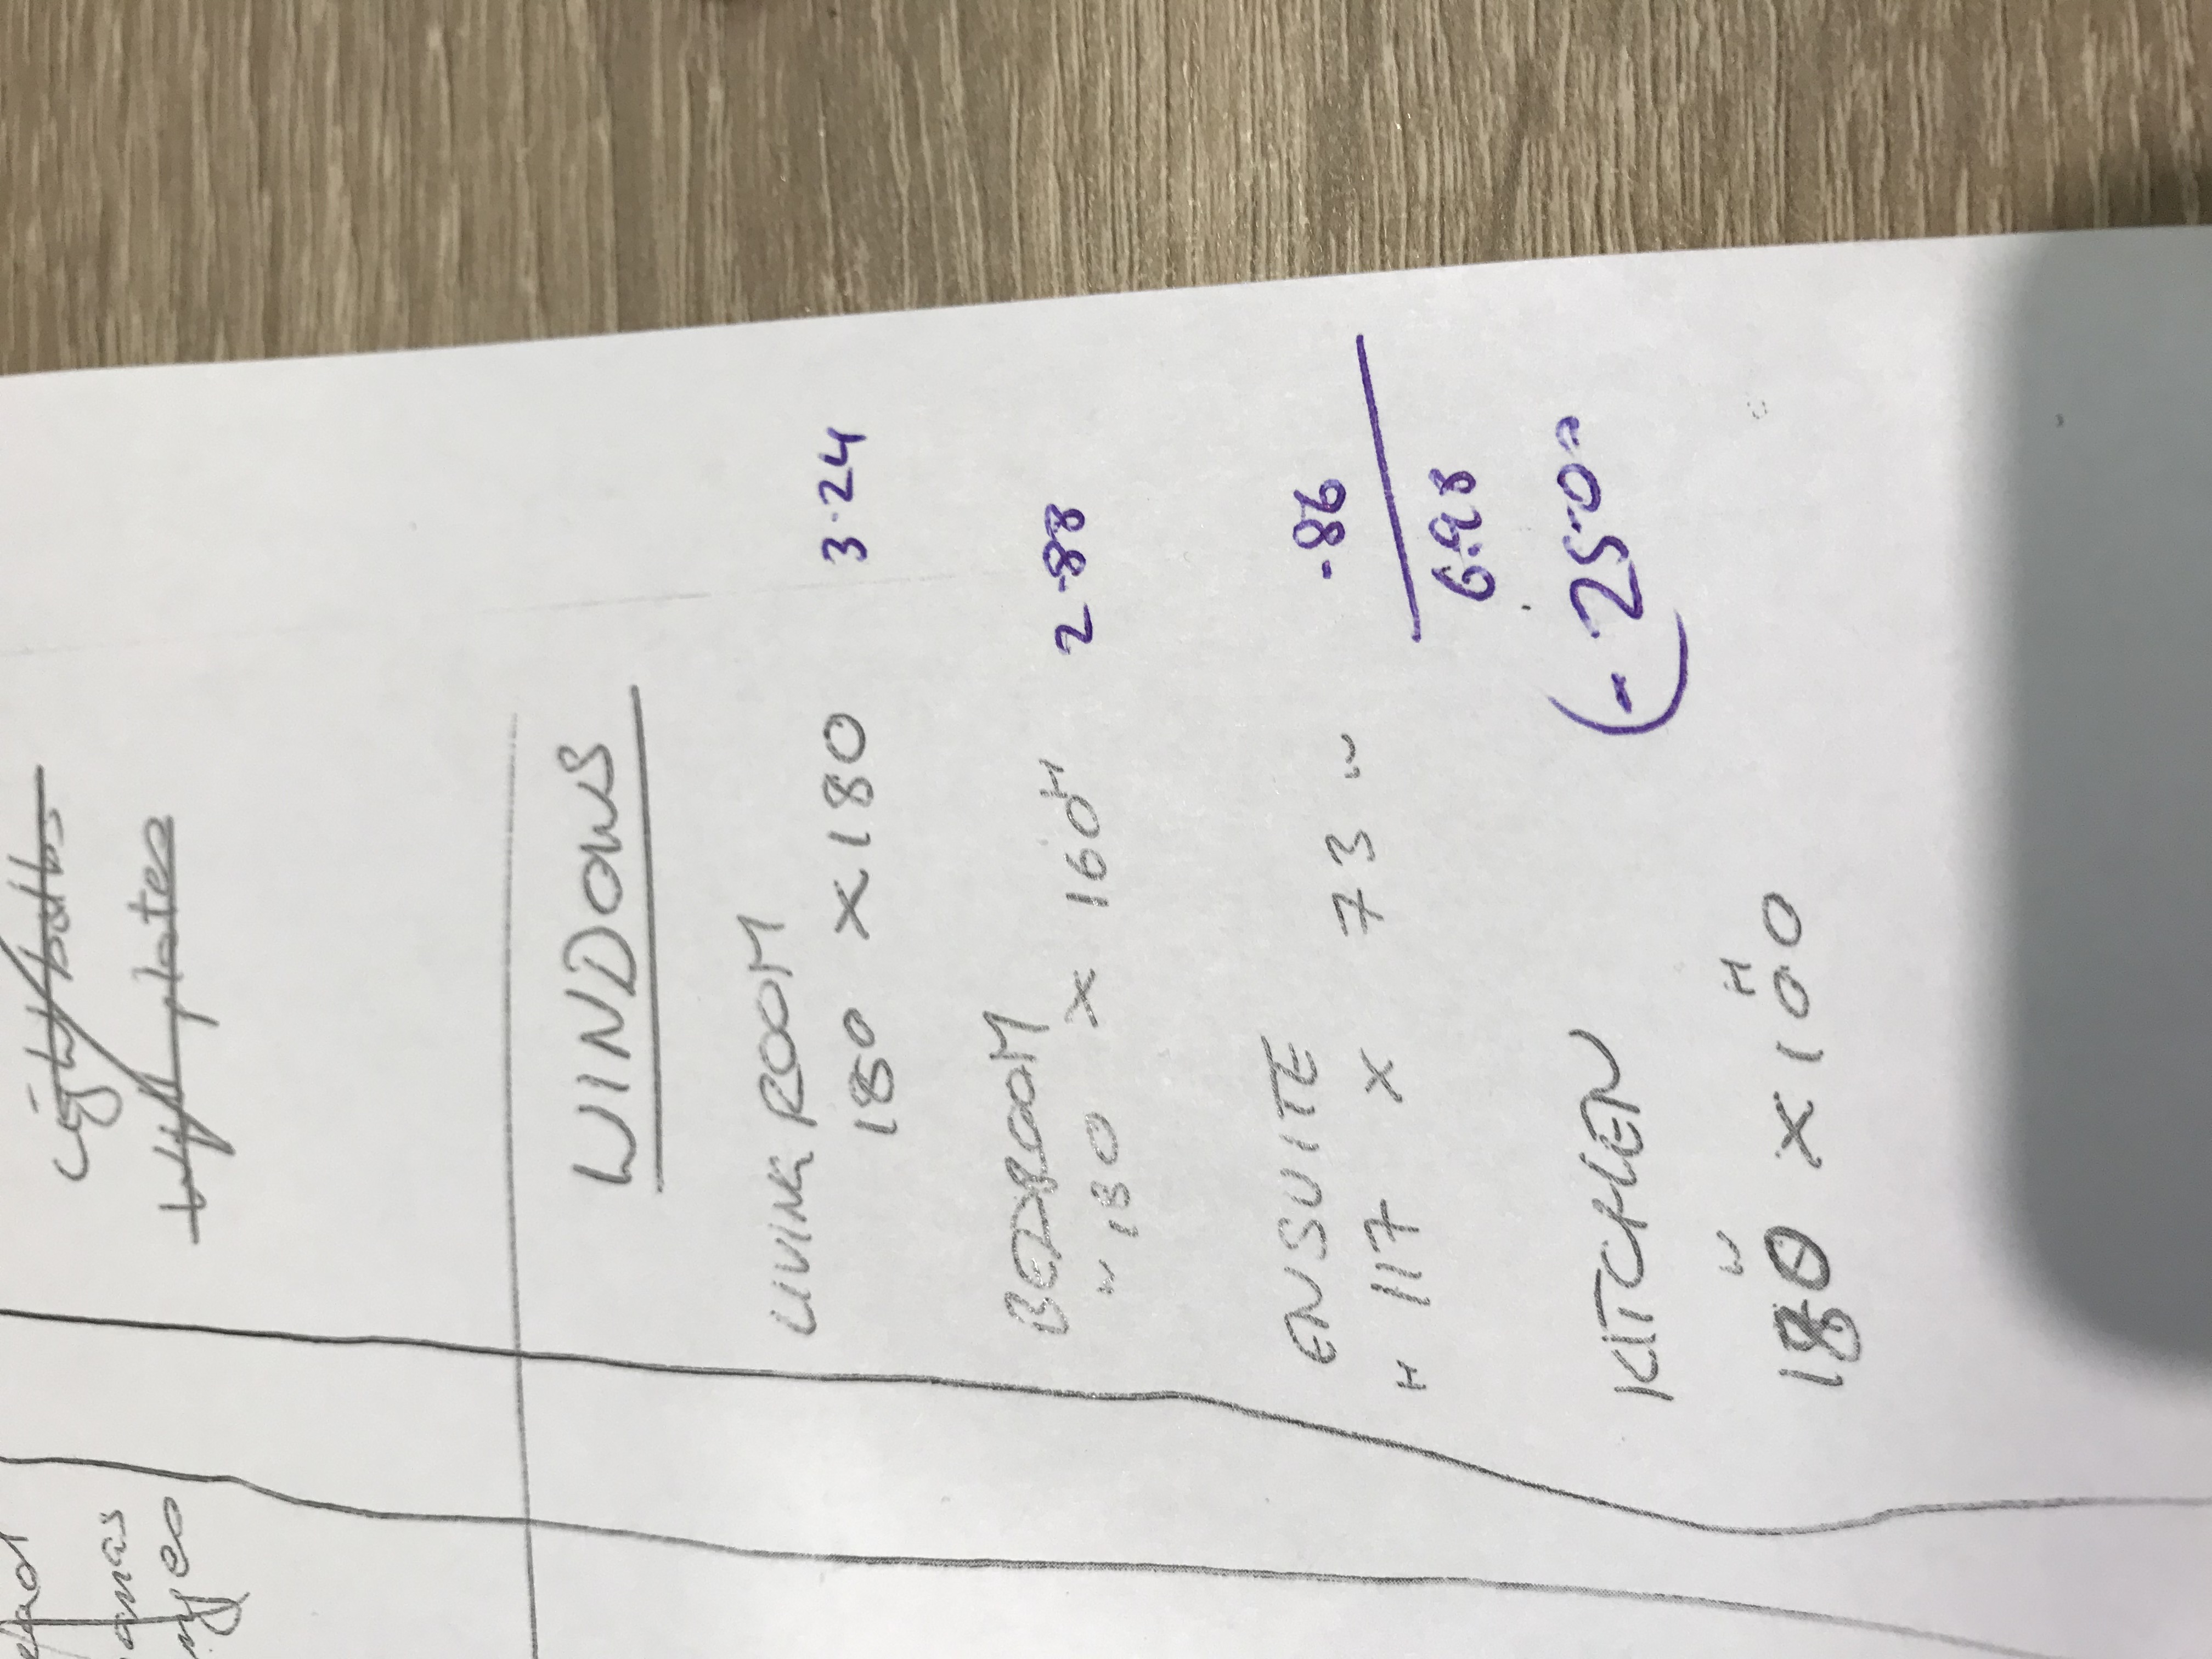 Light/bulbs
plates
WINDOWS
LIVING ROOM
180 X 180 3.24
BEDROOM
W 180 X 160 H 2.88
ENSUITE
H 117 X 73 W .86
6.98
KITCHEN (- 25.0
W H
180 X 100